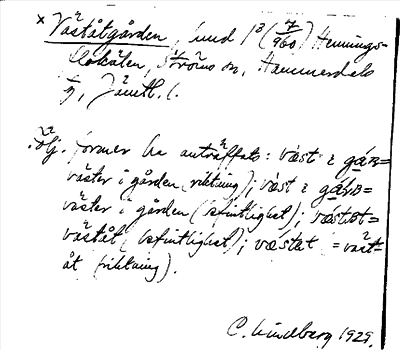 × Väståtgården, smd 1³ (7/960) Hennings-
klokälen, Ströms sn, Hammerdals
tg, Jämtl. l.
Följ. former ha anträffats: väst i gán=
väster i gården (riktning); väst i gán=
väster i gården (befintlighet); västat=
väståt (befintlighet); væstat = väst-
åt (riktning).
C. Lindberg 1929.